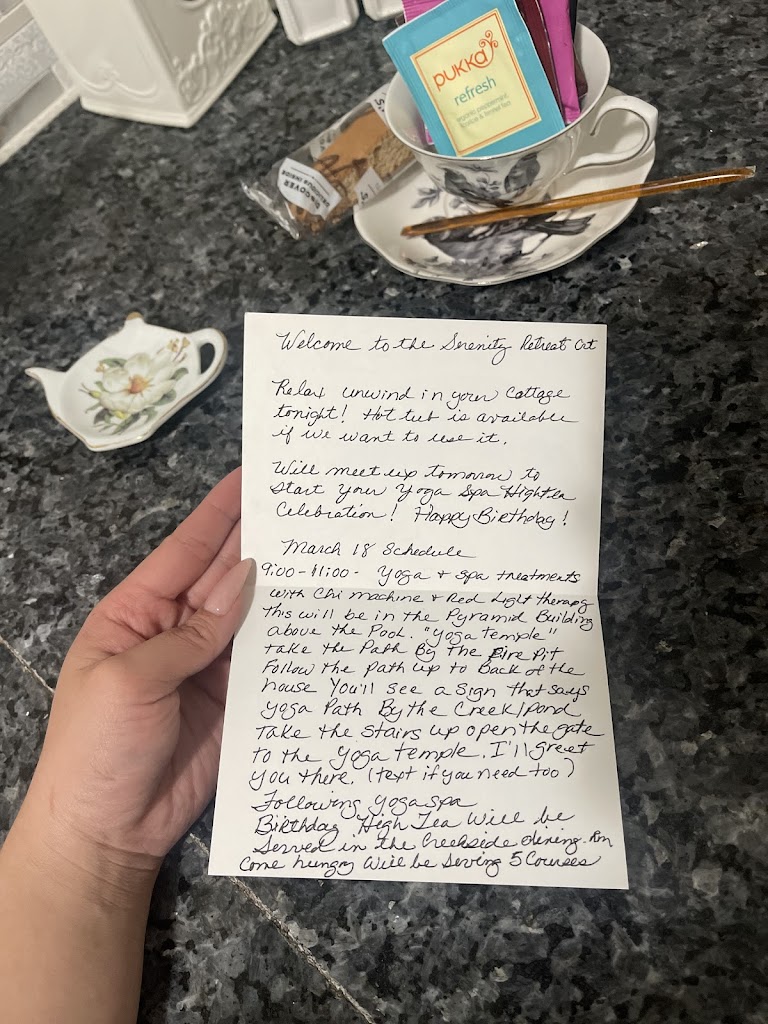 pukka
refresh
organic peppermint,
DISCOVER
DELICIOUS INSIDE
Welcome to the Serenity Retreat Crt
Relax unwind in your Cottage
tonight! Hot tub is available
if we want to use it.
Will meet up tomorrow to
Start your Yoga Spa High tea
Celebration! Happy Birthday!
March 18 Schedule
9:00-11:00- Yoga + spa treatments
with Chi machine + Red Light therapy
This will be in the Pyramid Building
above the Pool. "Yoga temple"
take the Path By The Fire Pit
Follow the path up to Back of the
house You'll see a sign that says
yoga Path By the Creek/pond
Take the stairs up open the gate
to the Yoga temple. I'll greet
you there. (text if you need too)
Following yoga spa
Birthday High Tea will be
Served in the Creekside dining Rm
Come hungry Will be Serving 5 Courses